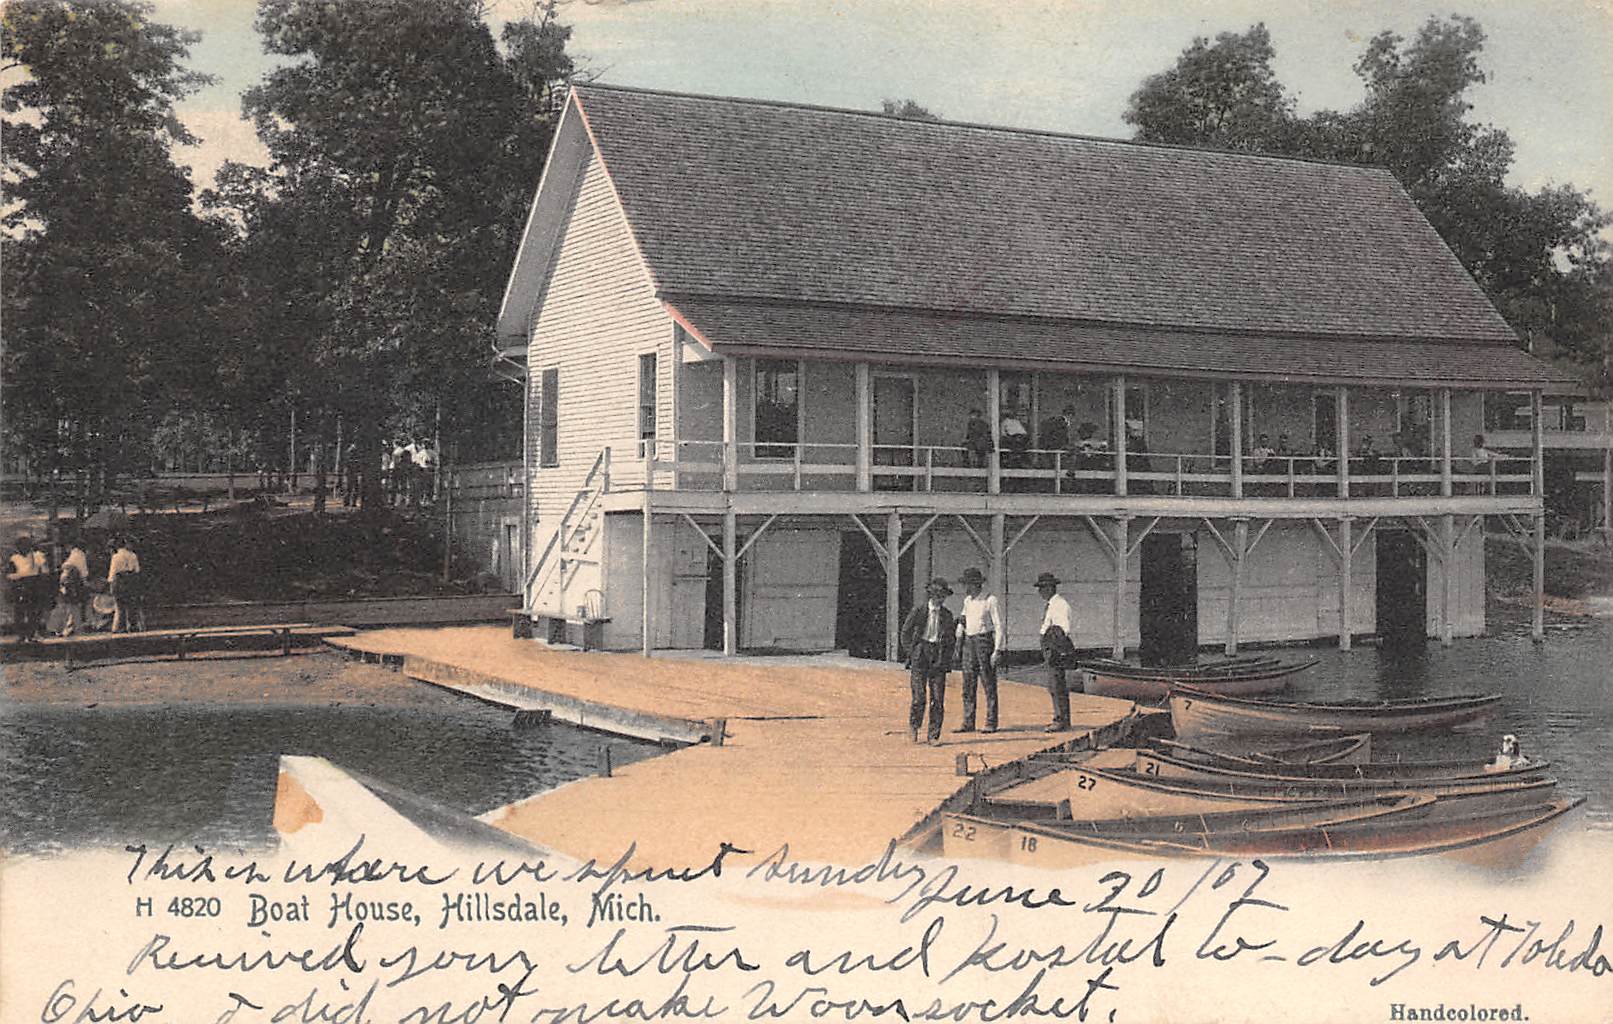 7
21
27
22
18
This is where we spent Sunday June 30/07
H 4820 Boat House, Hillsdale, Mich.
Received your letter and postal to-day at Toledo
Ohio I did not make Woonsocket.
Handcolored.